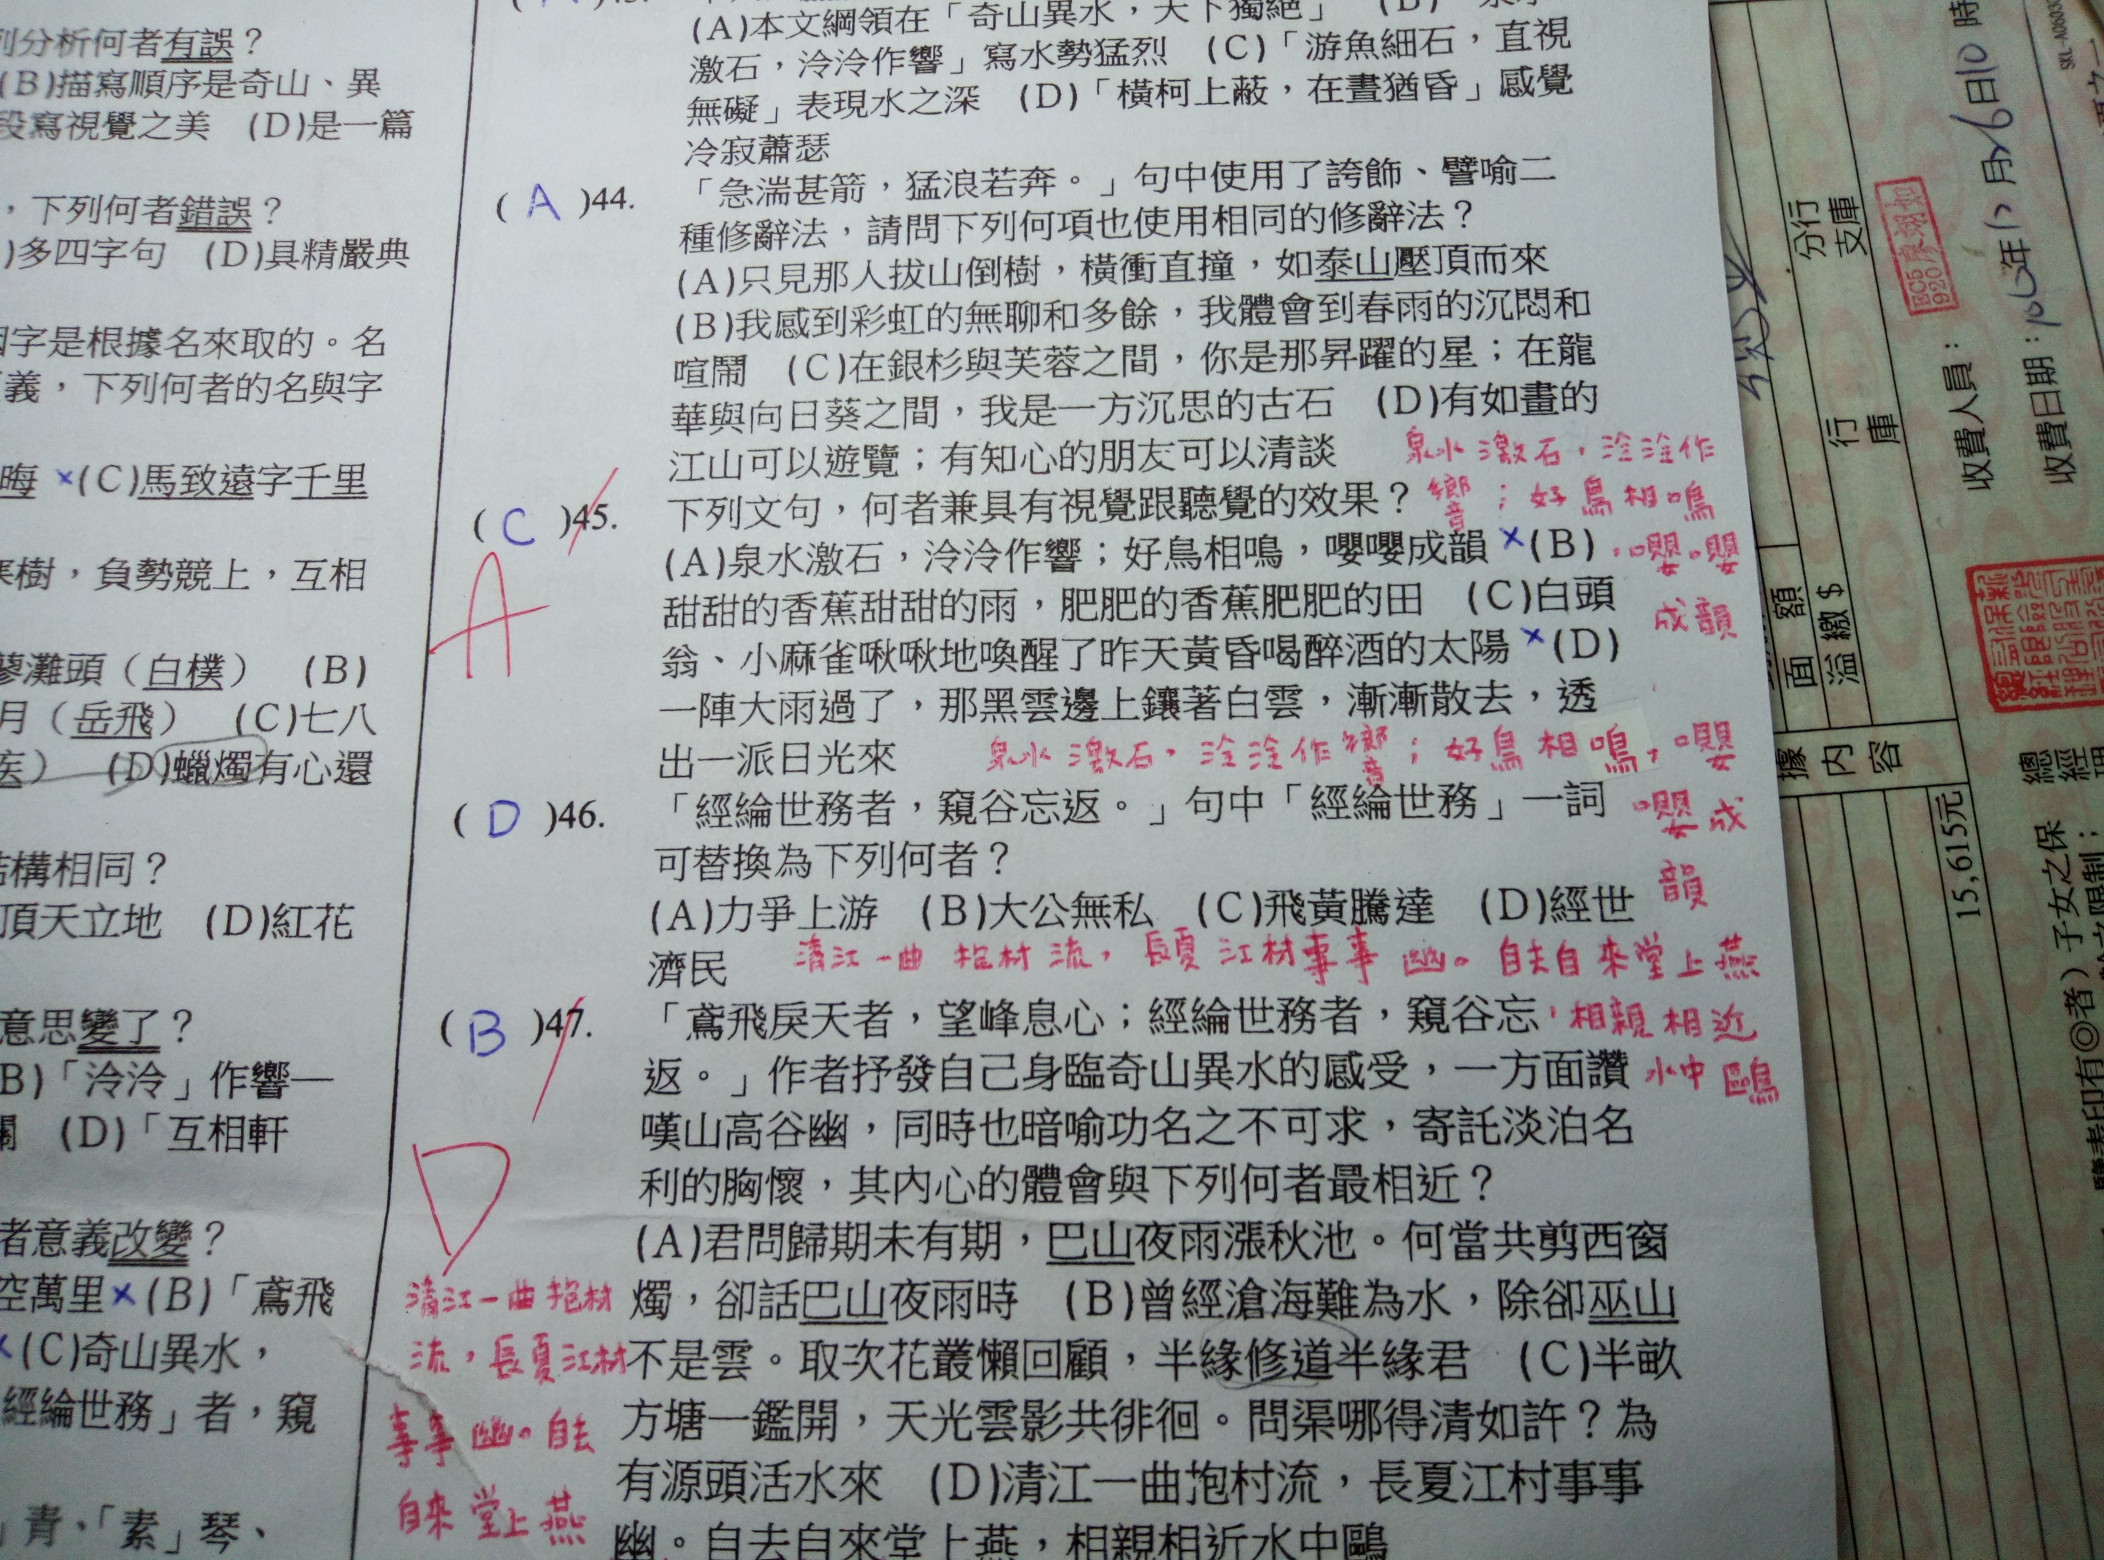 列分析何者有誤？
(B)描寫順序是奇山、異
段寫視覺之美 (D)是一篇
，下列何者錯誤？
)多四字句 (D)具精嚴典
字是根據名來取的。名
義，下列何者的名與字
晦 ×(C)馬致遠字千里
樹，負勢競上，互相
蓼灘頭（白樸） (B)
月（岳飛） (C)七八
疾） (D)蠟燭有心還
結構相同？
頂天立地 (D)紅花
意思變了？
B)「泠泠」作響—
(D)「互相軒
者意義改變？
空萬里×(B)「鳶飛
×(C)奇山異水，
經綸世務」者，窺
」青、「素」琴、
(A)本文綱領在「奇山異水，天下獨絕」 (B)
激石，泠泠作響」寫水勢猛烈 (C)「游魚細石，直視
無礙」表現水之深 (D)「橫柯上蔽，在晝猶昏」感覺
冷寂蕭瑟
( A )44. 「急湍甚箭，猛浪若奔。」句中使用了誇飾、譬喻二
種修辭法，請問下列何項也使用相同的修辭法？
(A)只見那人拔山倒樹，橫衝直撞，如泰山壓頂而來
(B)我感到彩虹的無聊和多餘，我體會到春雨的沉悶和
喧鬧 (C)在銀杉與芙蓉之間，你是那昇躍的星；在龍
華與向日葵之間，我是一方沉思的古石 (D)有如畫的
江山可以遊覽；有知心的朋友可以清談
泉水激石，泠泠作
響；好鳥相鳴
，嚶嚶
成韻
( C )45. 下列文句，何者兼具有視覺跟聽覺的效果？
A
(A)泉水激石，泠泠作響；好鳥相鳴，嚶嚶成韻 ×(B)
甜甜的香蕉甜甜的雨，肥肥的香蕉肥肥的田 (C)白頭
翁、小麻雀啾啾地喚醒了昨天黃昏喝醉酒的太陽 ×(D)
一陣大雨過了，那黑雲邊上鑲著白雲，漸漸散去，透
出一派日光來
泉水激石，泠泠作響；好鳥相鳴，嚶
嚶成
韻
( D )46. 「經綸世務者，窺谷忘返。」句中「經綸世務」一詞
可替換為下列何者？
(A)力爭上游 (B)大公無私 (C)飛黃騰達 (D)經世
濟民
清江一曲抱村流，長夏江村事事幽。自去自來堂上燕
，相親相近
水中鷗
( B )47. 「鳶飛戾天者，望峰息心；經綸世務者，窺谷忘
返。」作者抒發自己身臨奇山異水的感受，一方面讚
嘆山高谷幽，同時也暗喻功名之不可求，寄託淡泊名
利的胸懷，其內心的體會與下列何者最相近？
D
(A)君問歸期未有期，巴山夜雨漲秋池。何當共剪西窗
燭，卻話巴山夜雨時 (B)曾經滄海難為水，除卻巫山
不是雲。取次花叢懶回顧，半緣修道半緣君 (C)半畝
方塘一鑑開，天光雲影共徘徊。問渠哪得清如許？為
有源頭活水來 (D)清江一曲抱村流，長夏江村事事
幽。自去自來堂上燕，相親相近水中鷗
清江一曲抱村
流，長夏江村
事事幽。自去
自來堂上燕
分行
支庫
行
庫
收費人員：
收費日期：
面額
溢繳$
據內容
15,615元
總經理